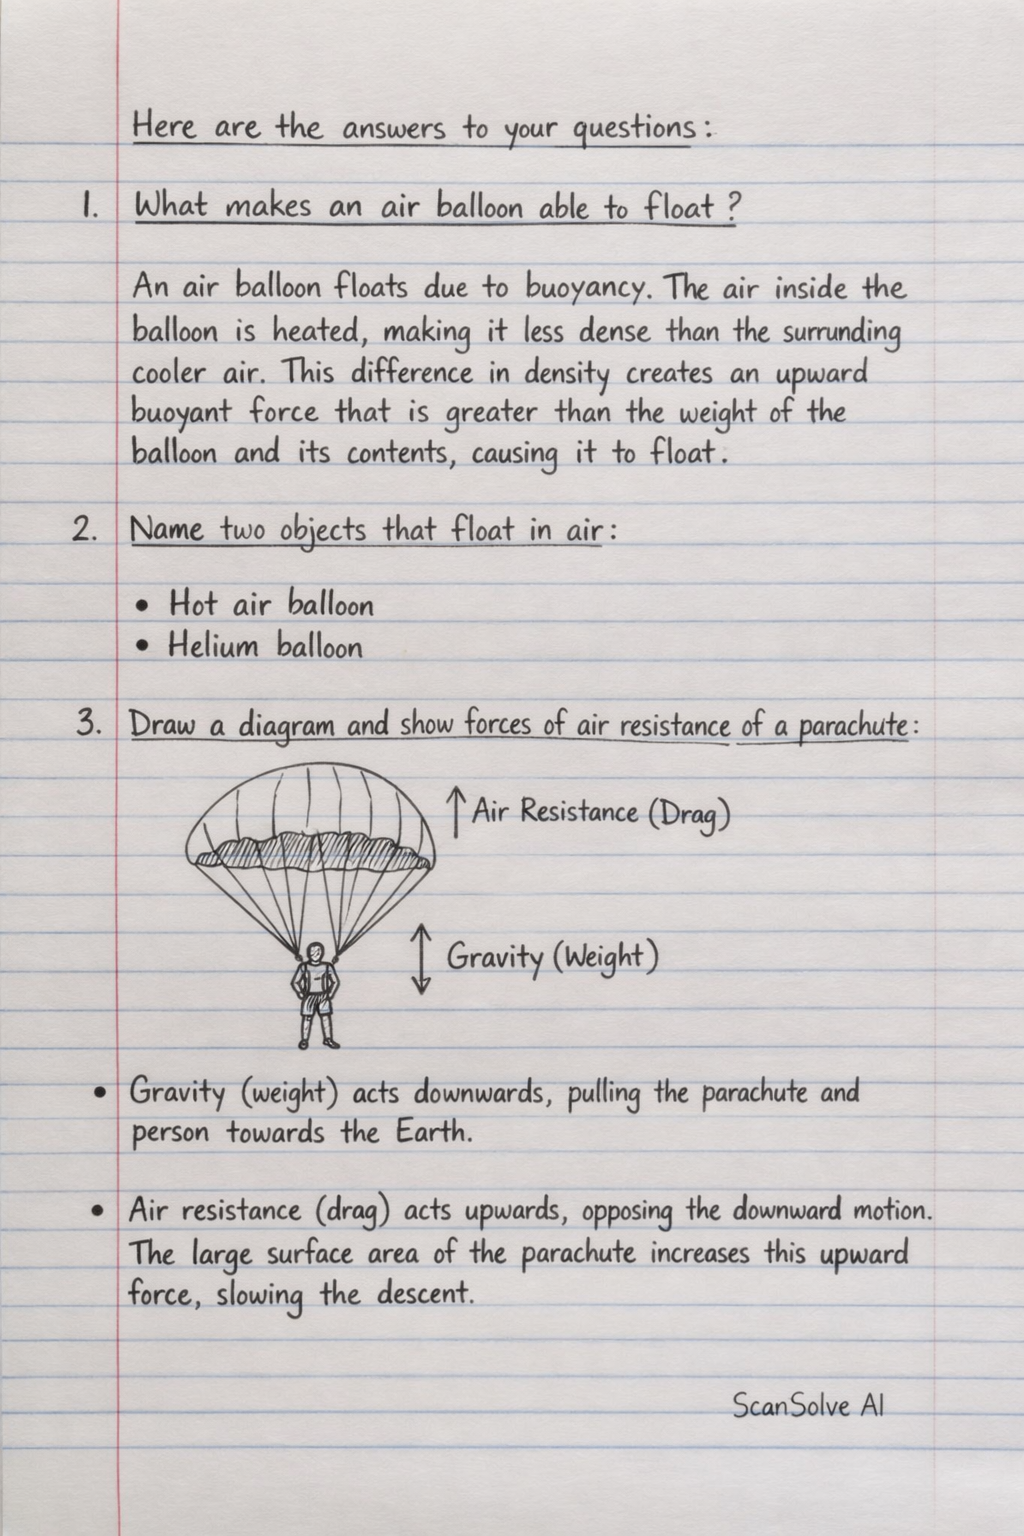 Here are the answers to your questions:
1. What makes an air balloon able to float?
An air balloon floats due to buoyancy. The air inside the
balloon is heated, making it less dense than the surrunding
cooler air. This difference in density creates an upward
buoyant force that is greater than the weight of the
balloon and its contents, causing it to float.
2. Name two objects that float in air:
• Hot air balloon
• Helium balloon
3. Draw a diagram and show forces of air resistance of a parachute:
↑ Air Resistance (Drag)
↕ Gravity (Weight)
• Gravity (weight) acts downwards, pulling the parachute and
person towards the Earth.
• Air resistance (drag) acts upwards, opposing the downward motion.
The large surface area of the parachute increases this upward
force, slowing the descent.
ScanSolve AI